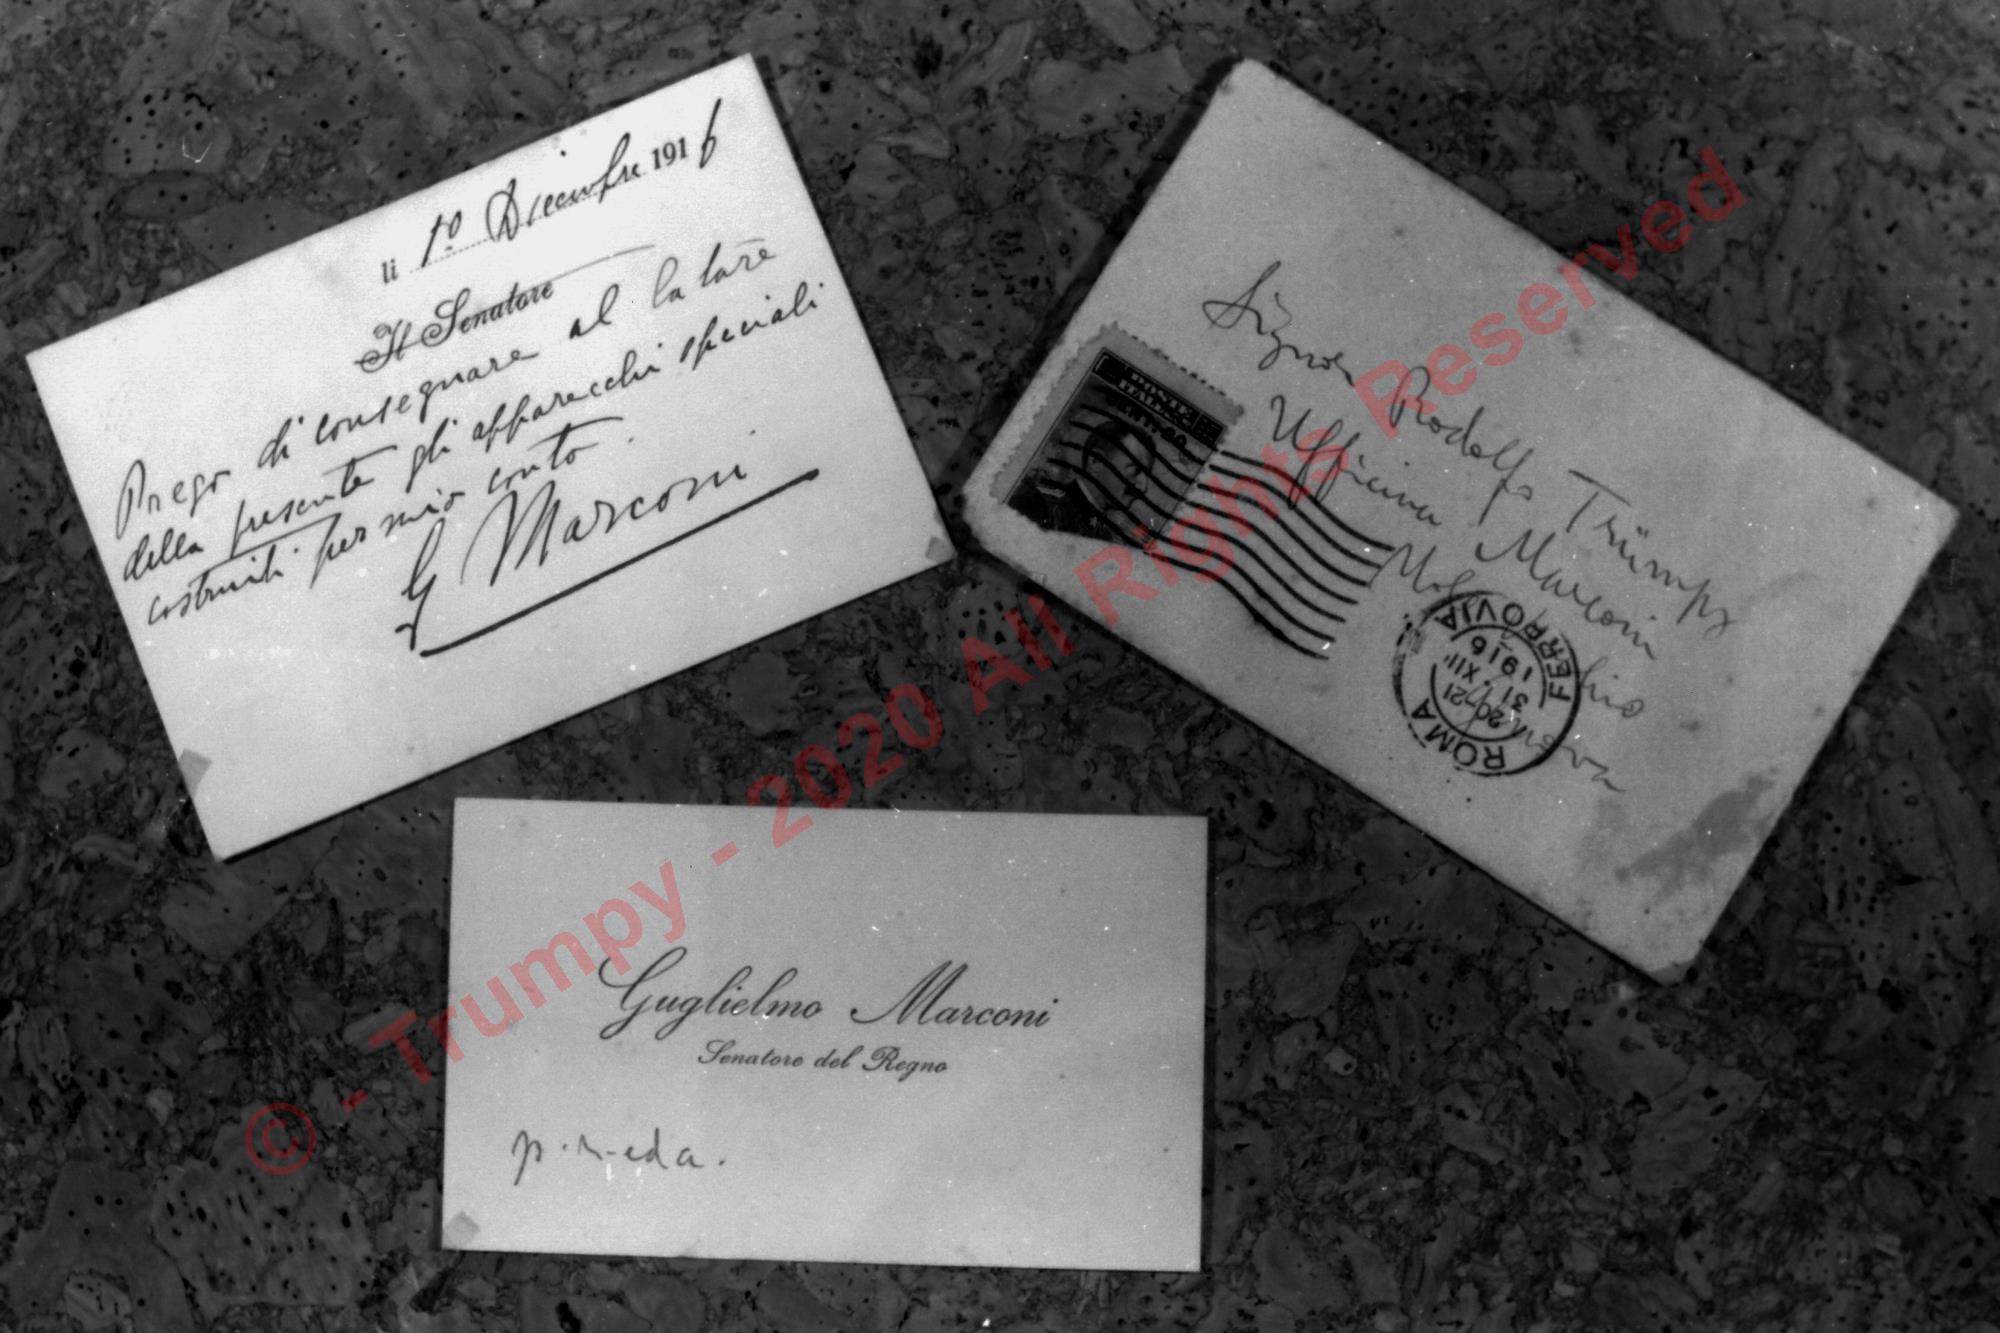 li 1º Dicembre 1916
Il Senatore
Prego di consegnare al latore
della presente gli apparecchi speciali
costruiti per mio conto
G Marconi
POSTE
ITALIANE
Signor Rodolfo Trümpy
Officina Marconi
ROMA FERROVIA
20-21
31 XII
1916
Guglielmo Marconi
Senatore del Regno
© - Trumpy - 2020 All Rights Reserved